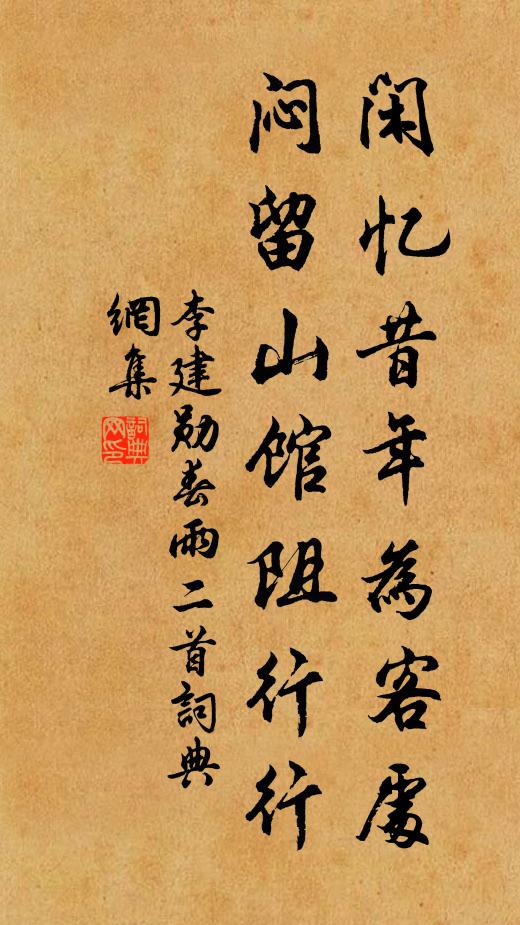 闲忆昔年为客处
闷留山馆阻行行
李建勋春雨二首词典
網集
詞典
网印